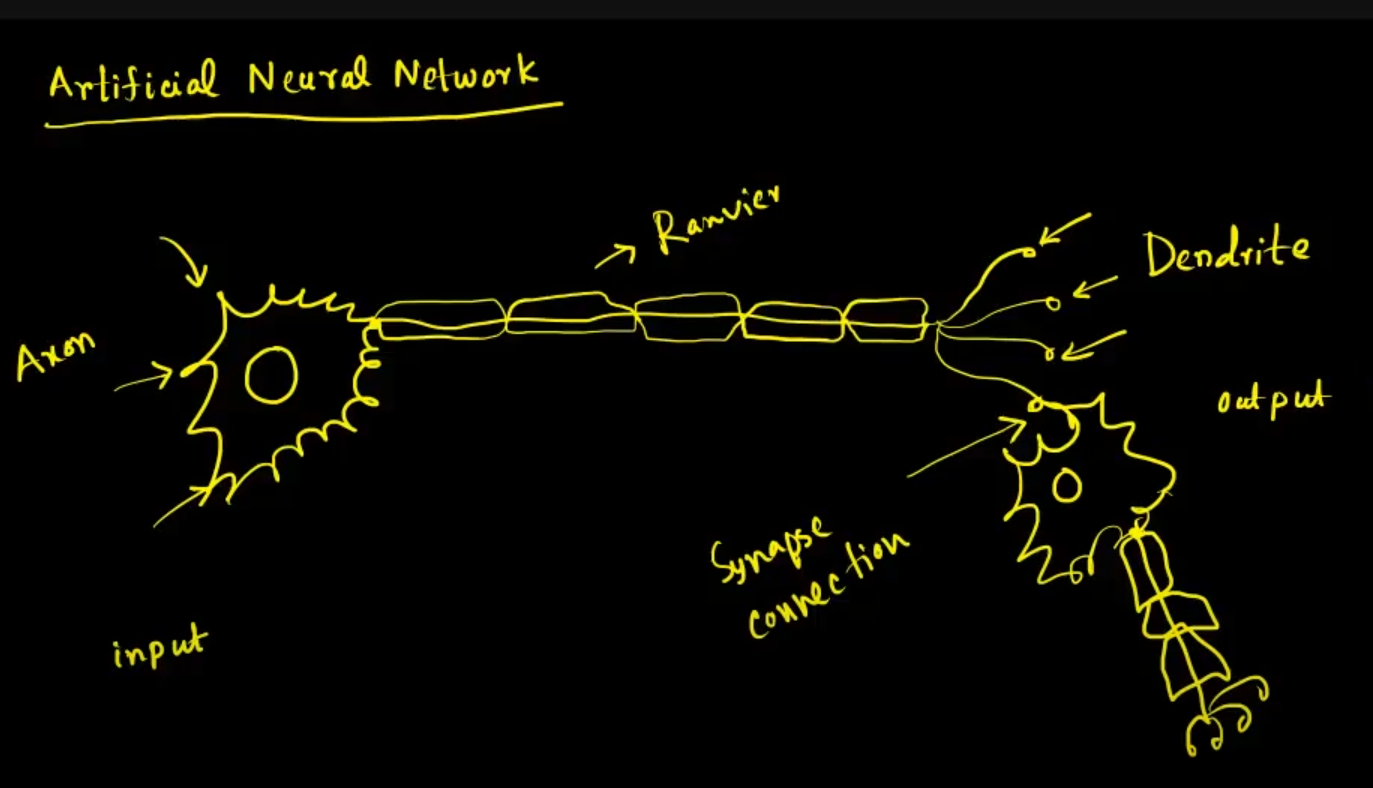 Artificial Neural Network
Ranvier
Dendrite
Axon
output
Synapse
connection
input